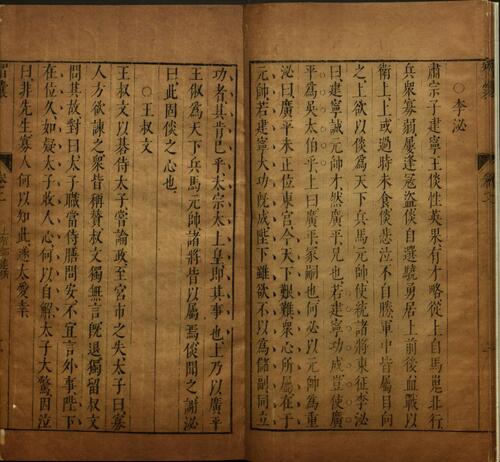 ○李泌
肅宗子建寧王倓性英果有才略從上自馬嵬北行
兵衆寡弱屢逢寇盜倓自選驍勇居上前後血戰以
衛上上或過時未食倓悲泣不自勝軍中皆屬目向
之上欲以倓為天下兵馬元帥使統諸將東征李泌
曰建寧誠元帥才然廣平兄也若建寧功成豈使廣
平為吳太伯乎上曰廣平冢嗣也何必以元帥為重
泌曰廣平未正位東宮今天下艱難衆心所屬在于
元帥若建寧大功既成陛下雖欲不以為儲副同立
功者其肯已乎太宗太上皇即其事也上乃以廣平
王俶為天下兵馬元帥諸將皆以屬焉倓聞之謝泌
曰此固倓之心也
○王叔文
王叔文以碁待太子嘗論政至宮市之失太子曰寡
人方欲諫之衆皆稱贊叔文獨無言既退獨留叔文
問其故對曰太子職當侍膳問安不宜言外事陛下
在位久如疑太子收人心何以自解太子大驚因泣
曰非先生寡人何以知此遂大愛幸
智囊
卷二